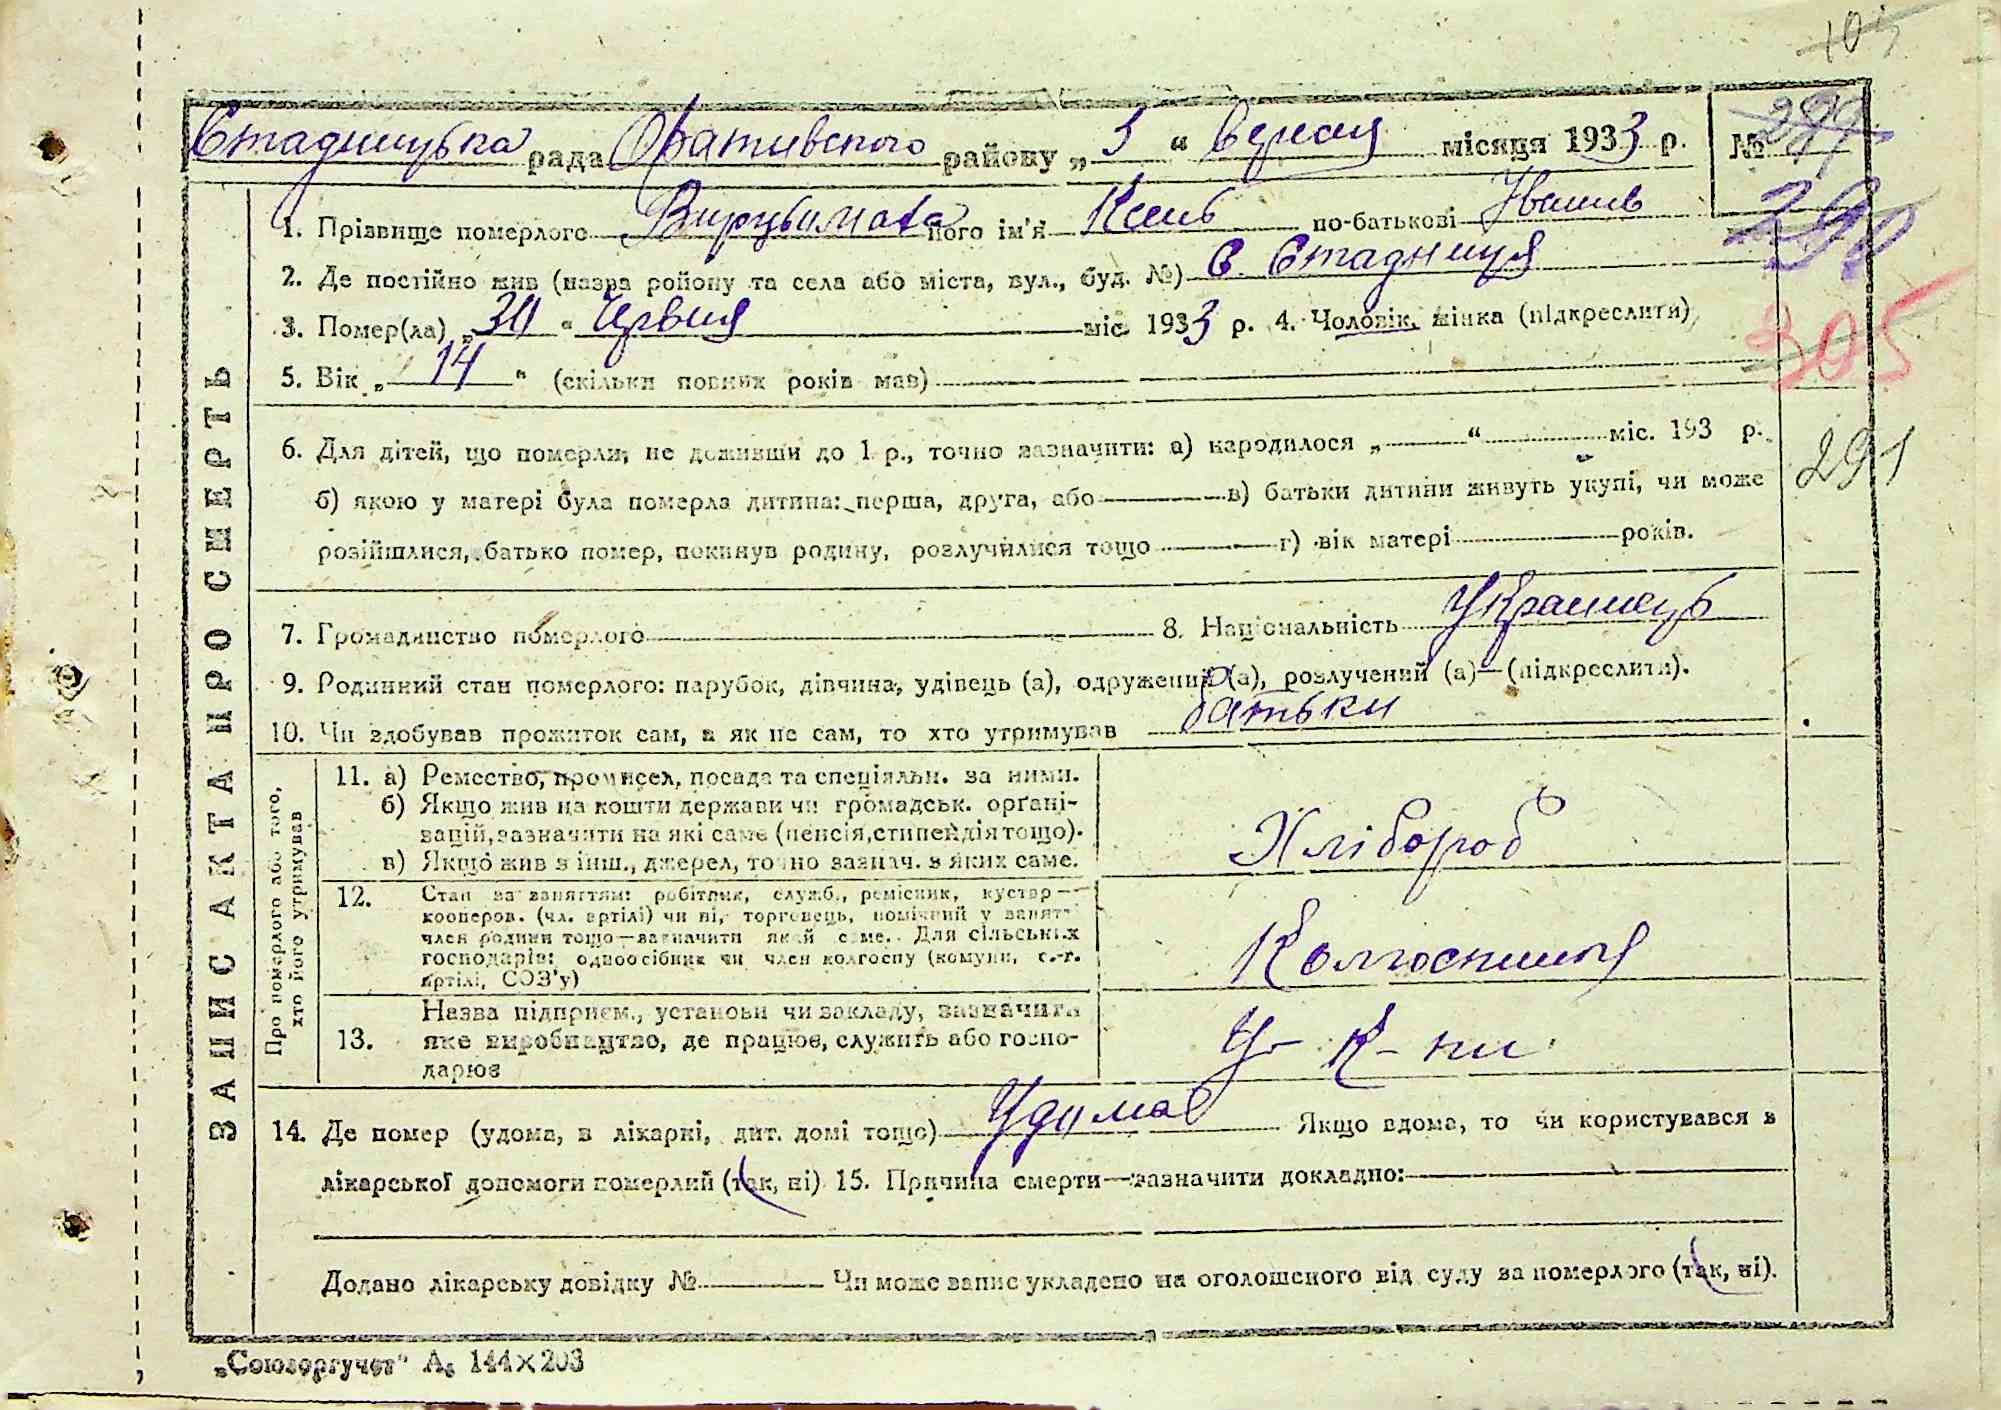 105
Стадницька рада Оратівского району „ 3 “ вересня місяця 1933 р. № 289
290
1. Прізвище померлого його ім'я по-батькові Іванів
2. Де постійно жив (назва району та села або міста, вул., буд. №) с. Стадниця
3. Помер(ла) „ 30 “ червня міс. 1933 р. 4. Чоловік, жінка (підкреслити)
305
5. Вік „ 14 “ (скільки повних років мав)
6. Для дітей, що померли, не доживши до 1 р., точно зазначити: а) народилося „ “ міс. 193 р.
291
б) якою у матері була померла дитина: перша, друга, або в) батьки дитини живуть укупі, чи може
розійшлися, батько помер, покинув родину, розлучилися тощо г) вік матері років.
7. Громадянство померлого 8. Національність Українець
9. Родинний стан померлого: парубок, дівчина, удівець (а), одружений (а), розлучений (а)—(підкреслити).
10. Чи здобував прожиток сам, а як не сам, то хто утримував батьки
ЗАПИС АКТА ПРО СМЕРТЬ
Про померлого або того,
хто його утримував
11. а) Ремество, промисел, посада та спеціяльн. за ними.
б) Якщо жив на кошти держави чи громадськ. орґані-
зацій, зазначити на які саме (пенсія, стипендія тощо).
в) Якщо жив з інш., джерел, точно зазнач. з яких саме.
Хлібороб
12. Стан за заняттям: робітник, служб., ремісник, кустар—
кооперов. (чл. артілі) чи ні, торговець, помічний у занятт
член родини тощо—зазначити який саме. Для сільських
господарів: одноосібник чи член колгоспу (комуни, с.-г.
артілі, СОЗ'у)
13. Назва підприєм., установи чи закладу, зазначити
яке виробництво, де працює, служить або госпо-
дарює
У К-пи
14. Де помер (удома, в лікарні, дит. домі тощо) Удома Якщо вдома, то чи користувався в
лікарської допомоги померлий (так, ні) 15. Причина смерти—зазначити докладно:
Додано лікарську довідку № Чи може запис укладено на оголошеного від суду за померлого (так, ні).
„Союзоргучет“ А₆ 144×203